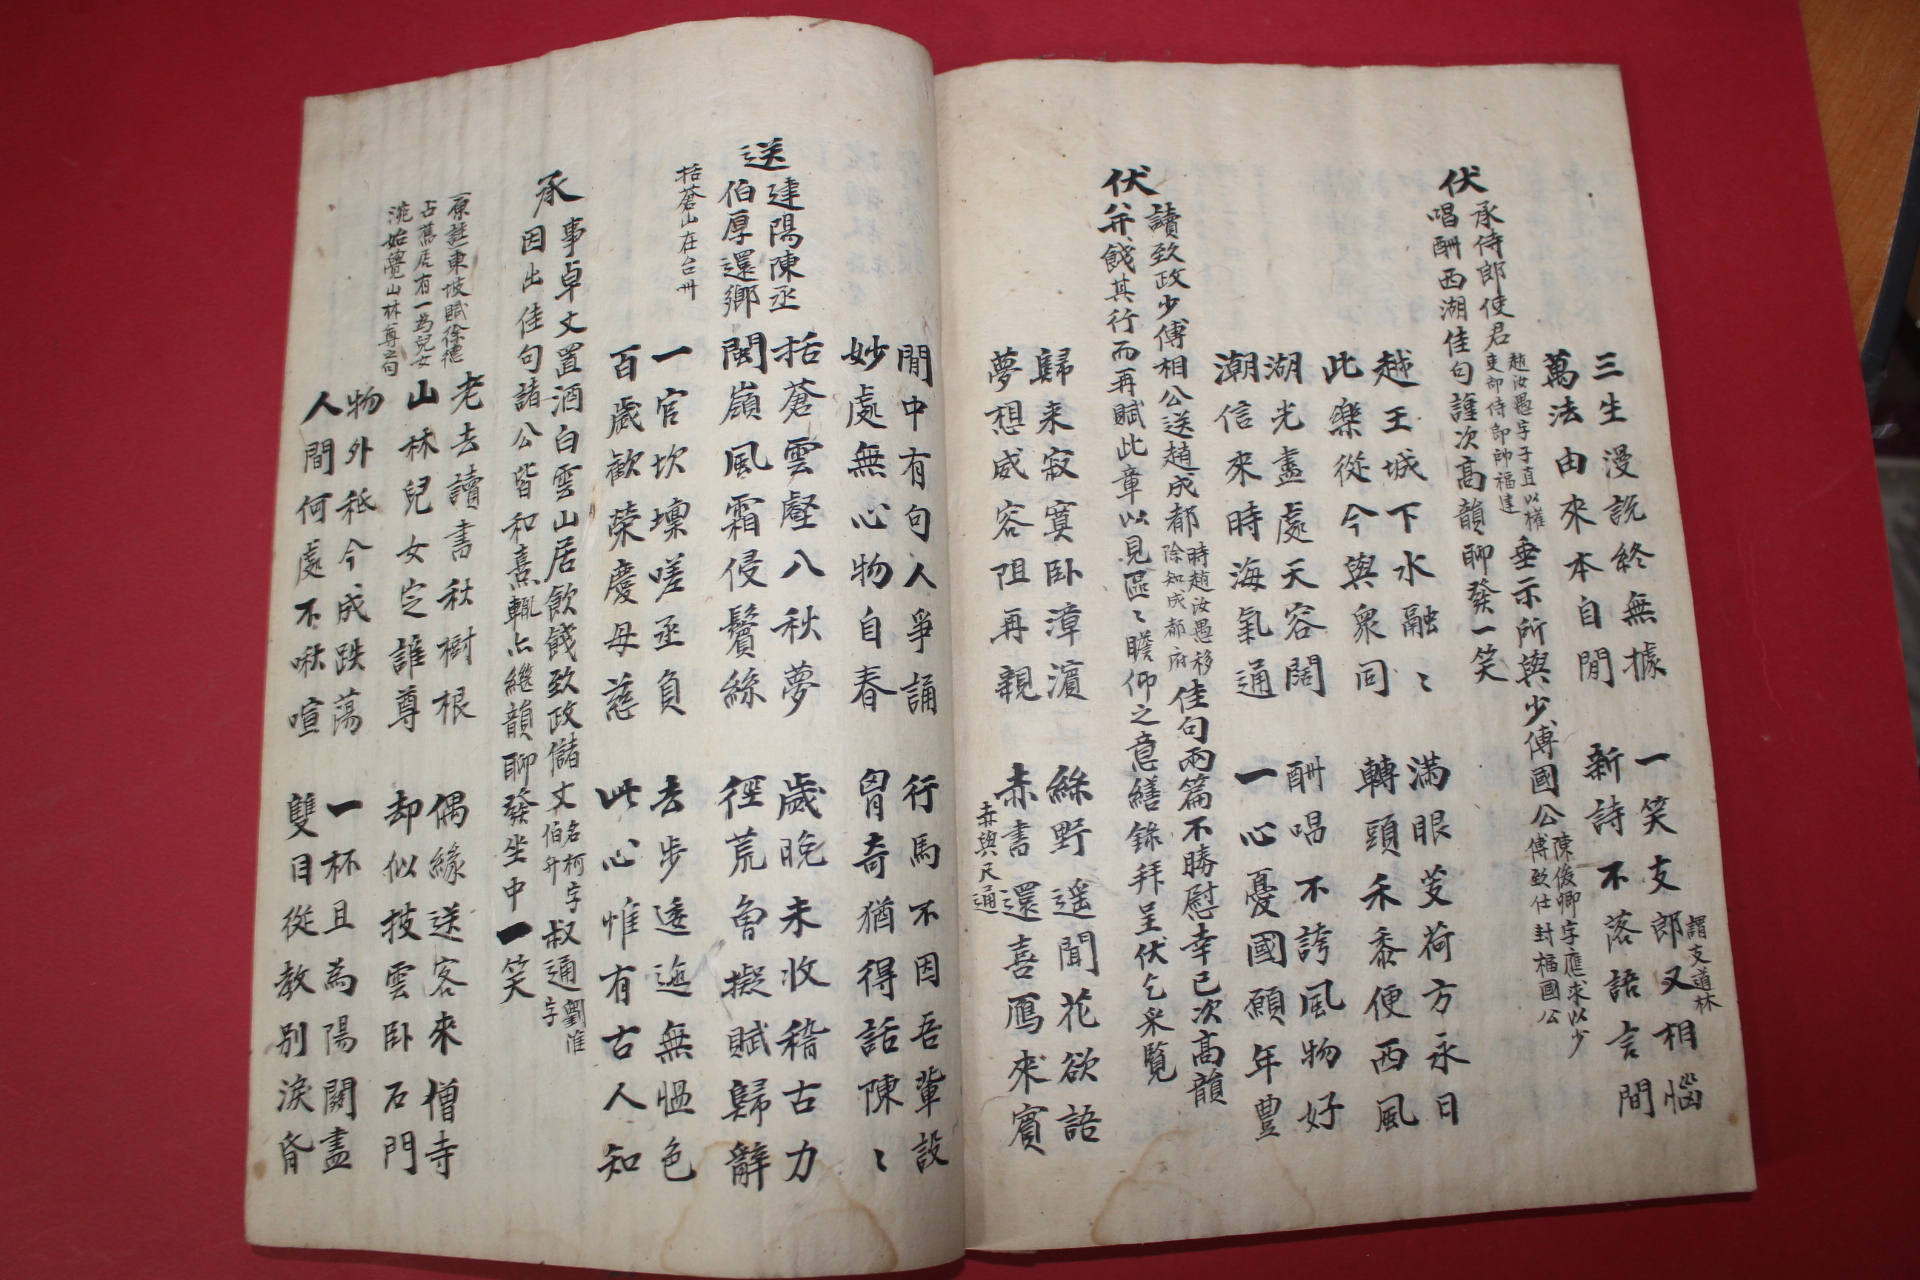 三生漫說終無據
一笑支郎又相惱
謂支道林
萬法由來本自閒
新詩不落語言間
伏承侍郎使君
趙汝愚字子直以權
吏部侍郎帥福建
垂示所與少傅國公
陳俊卿字應求以少
傅致仕封福國公
唱酬西湖佳句謹次高韻聊發一笑
越王城下水融〻
滿眼芰荷方永日
此樂從今與衆同
轉頭禾黍便西風
湖光盡處天容闊
酬唱不誇風物好
潮信來時海氣通
一心憂國願年豊
伏讀致政少傅相公送趙成都
時趙汝愚移
除知成都府
佳句兩篇不勝慰幸已次高韻
并餞其行而再賦此章以見區〻瞻仰之意繕錄拜呈伏乞采覽
歸来寂寞卧漳濵
綠野遥聞花欲語
夢想威容阻再親
赤書還喜鴈來賓
赤與尺通
閒中有句人爭誦
行馬不因吾輩設
妙處無心物自春
胷奇猶得話陳〻
送建陽陳丞
伯厚還鄉
括蒼山在台州
括蒼雲壑八秋夢
歲晩未收稽古力
閩嶺風霜侵鬢絲
徑荒曾擬賦歸辭
一官坎壈嗟丞負
去步逶迤無愠色
百歲歡榮慶母慈
此心惟有古人知
承事卓丈置酒白雲山居飲餞致政儲丈
名柯字
伯升
叔通
劉淮
字
因出佳句諸公皆和熹輒亦繼韻聊發坐中一笑
原註東坡賦徐德
占舊居有一爲兒女
洮始覺山林尊之句
老去讀書秋樹根
偶緣送客來僧寺
山林兒女定誰尊
却似披雲卧石門
物外秖今成跌蕩
一杯且為陽關盡
人間何處不啾喧
雙目從教别淚昏